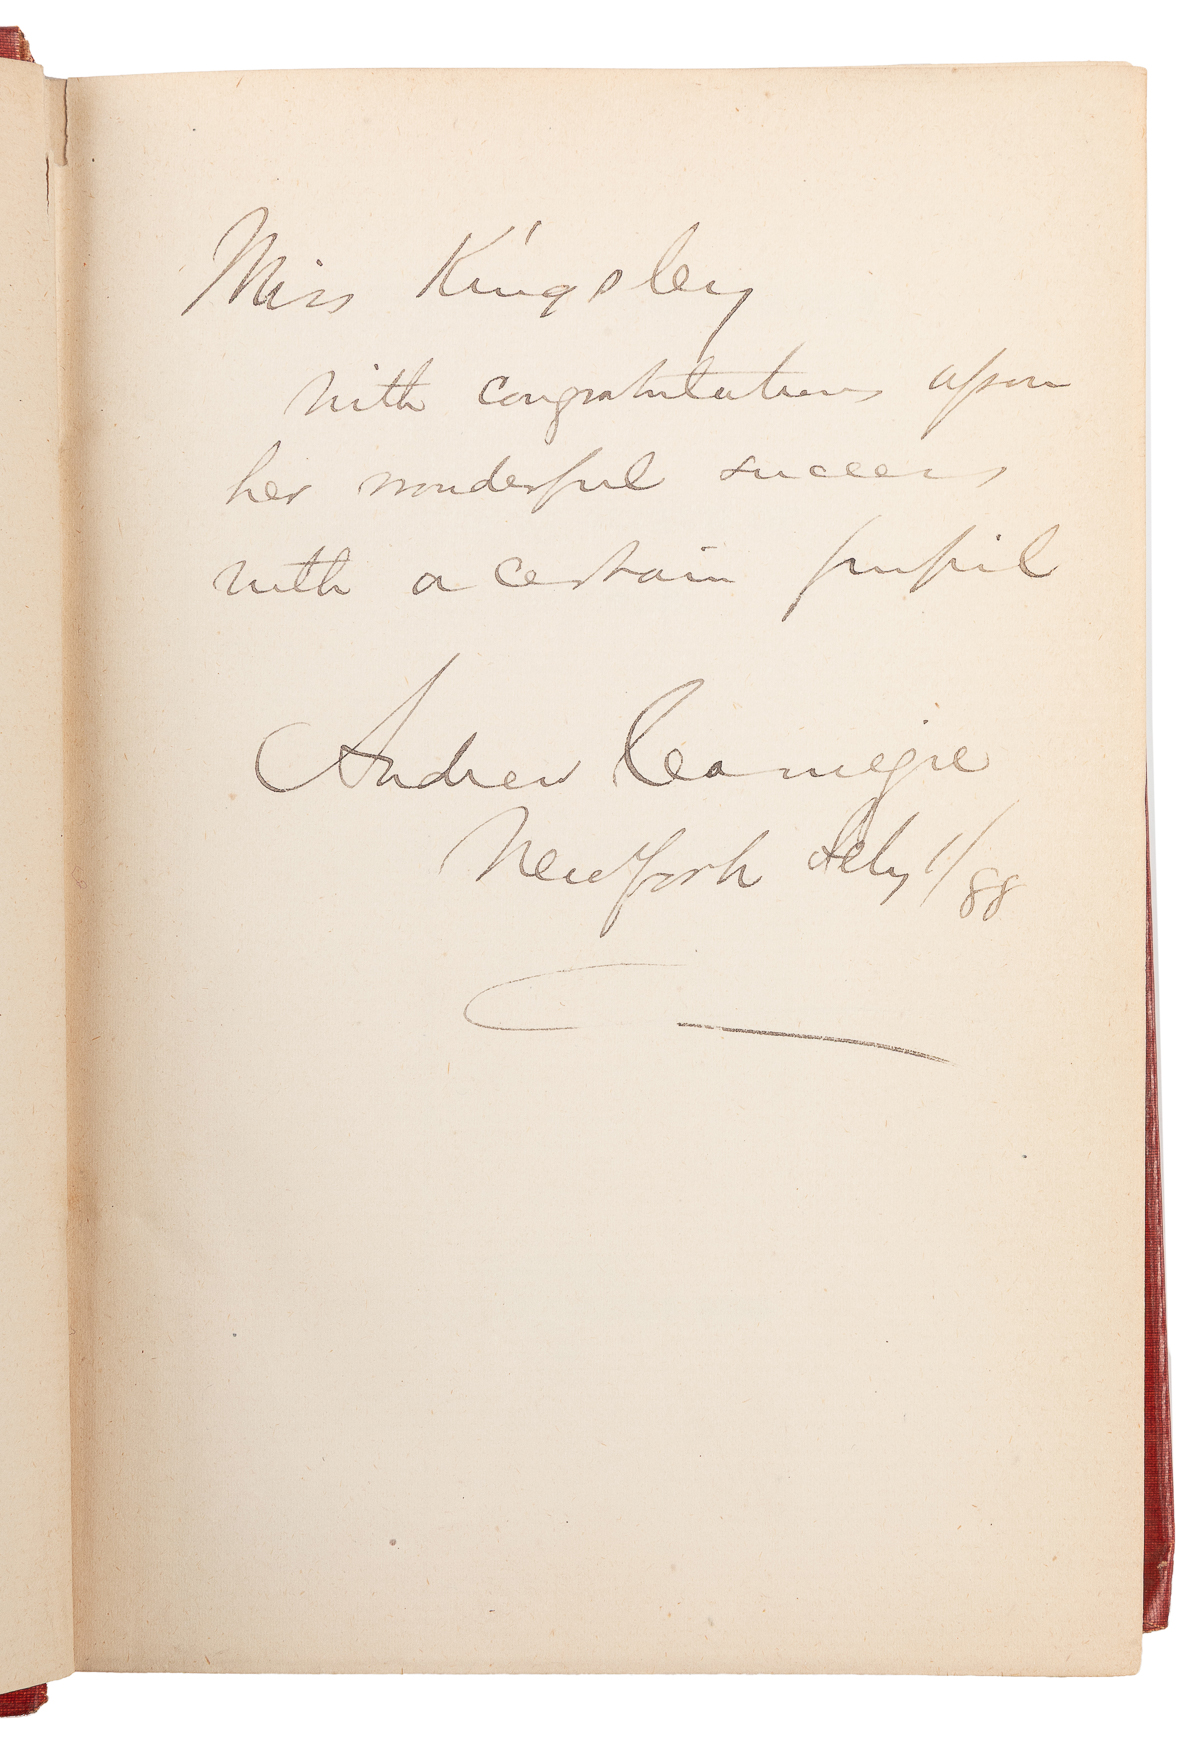 Miss Kingsley
with congratulations upon
her wonderful success
with a certain pupil
Andrew Carnegie
New York Feby 1/88